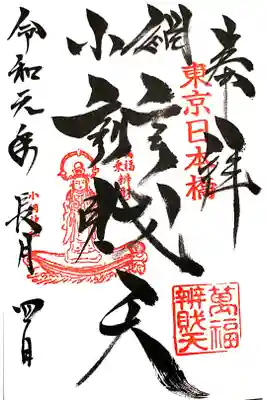 奉拝
東京日本橋
小網
辨財天
萬福
辨財天
令和元年 長月 四日